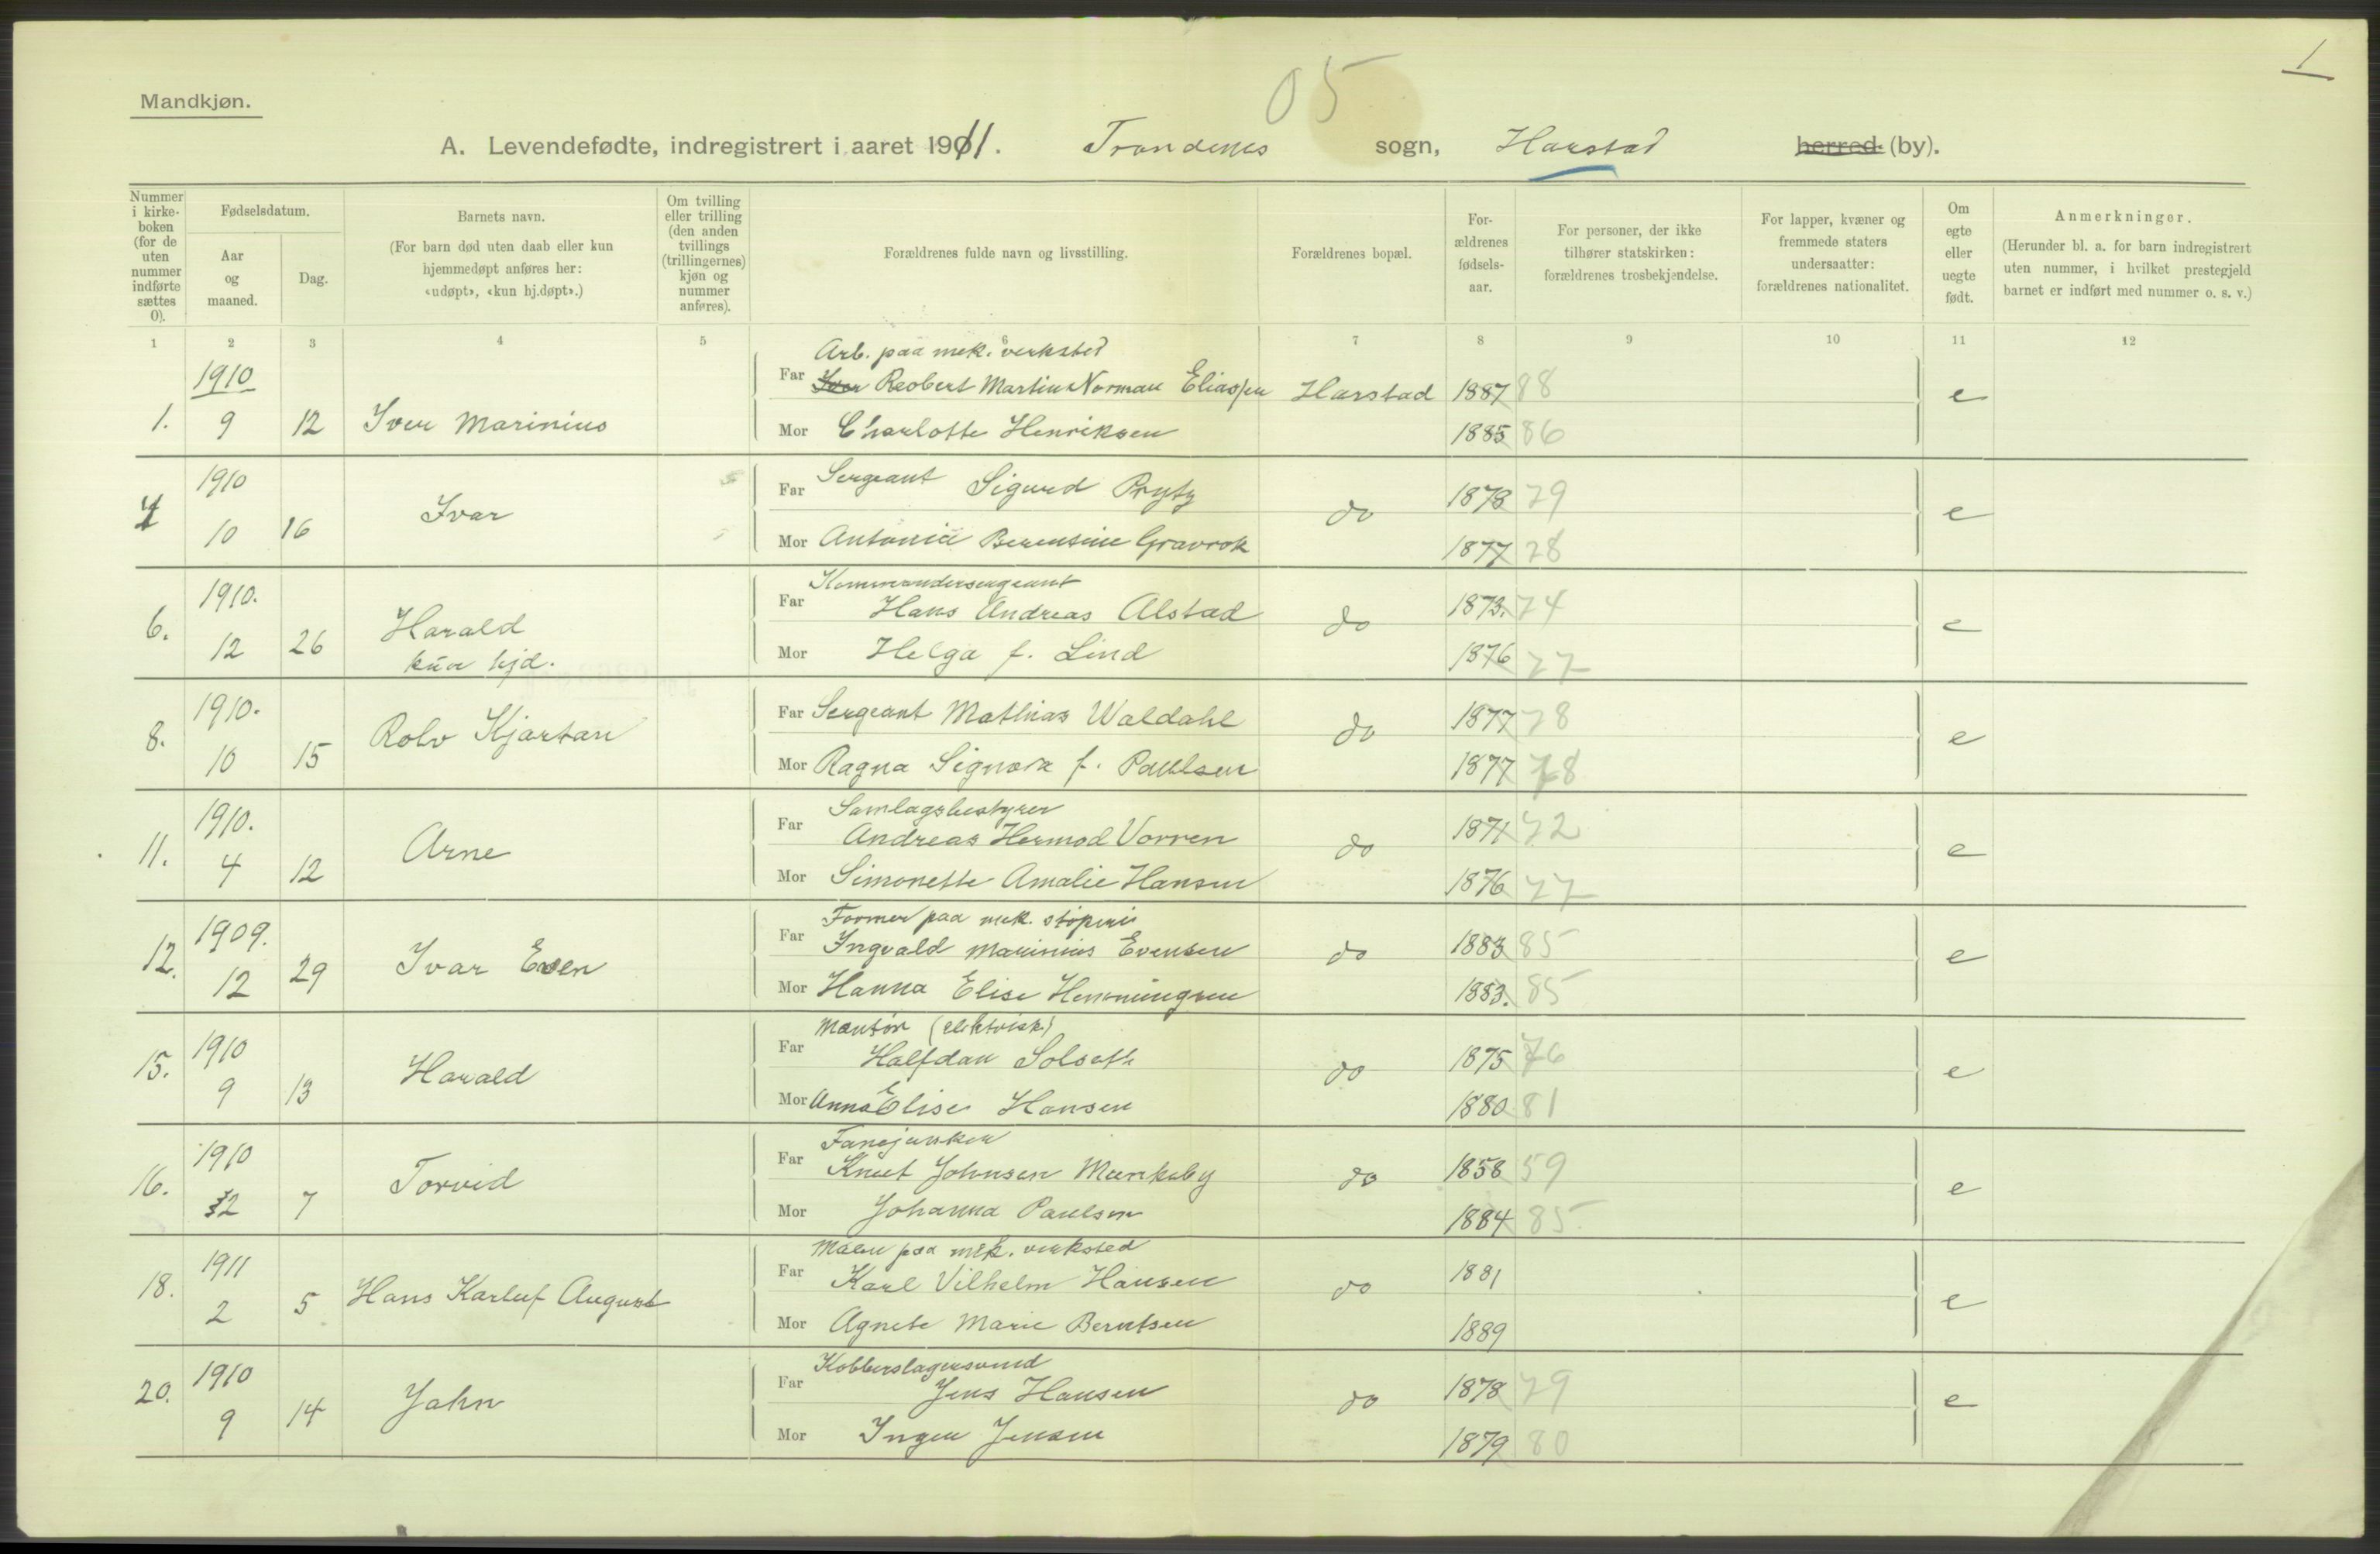 1
05
Mandkjøn.
A. Levendefødte, indregistrert i aaret 1911. Trondenes sogn, Harstad herred (by).
Nummer i kirkeboken (for de uten nummer indførte sættes 0).
Fødselsdatum.
Aar og maaned.
Dag.
Barnets navn.
(For barn død uten daab eller kun hjemmedøpt anføres her: «udøpt», «kun hj.døpt».)
Om tvilling eller trilling (den anden tvillings (trillingernes) kjøn og nummer anføres).
Forældrenes fulde navn og livsstilling.
Forældrenes bopæl.
Forældrenes fødselsaar.
For personer, der ikke tilhører statskirken: forældrenes trosbekjendelse.
For lapper, kvæner og fremmede staters undersaatter: forældrenes nationalitet.
Om egte eller uegte født.
Anmerkninger.
(Herunder bl. a. for barn indregistrert uten nummer, i hvilket prestegjeld barnet er indført med nummer o. s. v.)
1 2 3 4 5 6 7 8 9 10 11 12
Arb. paa mek. verksted
1910 Far Iver Reobert Martin Norman Eliassen Harstad 1887 88 e
1. 9 12 Iver Marinius
Mor Charlotte Henriksen 1885 86
1910 Far Sergeant Sigurd Prytz do 1878 79 e
4 10 16 Ivar
Mor Antonie Berentine Gravrok 1877 78
Kommandersergeant
1910. Far Hans Andreas Alstad do 1873. 74 e
6. 12 26 Harald
kun hjd.
Mor Helga f. Lind 1876 77
1910. Far Sergeant Mathias Waldahl do 1877 78 e
8. 10 15 Rolv Kjartan
Mor Ragna Signora f. Paulsen 1877 78
Samlagsbestyrer
1910. Far Andreas Hermod Vorren do 1871 72 e
11. 4 12 Arne
Mor Simonette Amalie Hansen 1876 77
Former paa mek. støperi
1909. Far Ingvald Marinius Evensen do 1883 85 e
12. 12 29 Ivar Even
Mor Hanna Elise Henningsen 1883. 85
Montør (elektrisk)
1910 Far Halfdan Solseth do 1875 76 e
15. 9 13 Harald
Mor Anna Elise Hansen 1880 81
Fanejunker
1910 Far Knut Johnsen Munkeby do 1858 59 e
16. 12 7 Torvid
Mor Johanna Paulsen 1884 85
Maler paa mek. verksted
1911 Far Karl Vilhelm Hansen do 1881 e
18. 2 5 Hans Karluf August
Mor Agnete Marie Berntsen 1889
Kobberslagersvend
1910 Far Jens Hansen do 1878 79 e
20. 9 14 Jahn
Mor Inga Jensen 1879 80